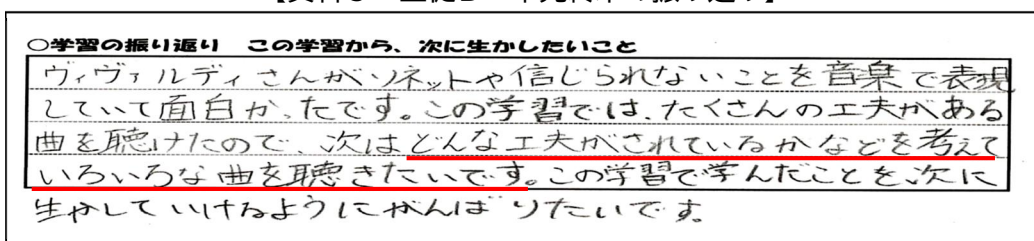 ○学習の振り返り この学習から、次に生かしたいこと
ヴィヴァルディさんがソネットや信じられないことを音楽で表現
していて面白かったです。この学習では、たくさんの工夫がある
曲を聴けたので、次はどんな工夫がされているかなどを考えて
いろいろな曲を聴きたいです。この学習で学んだことを次に
生かしていけるようにがんばりたいです。